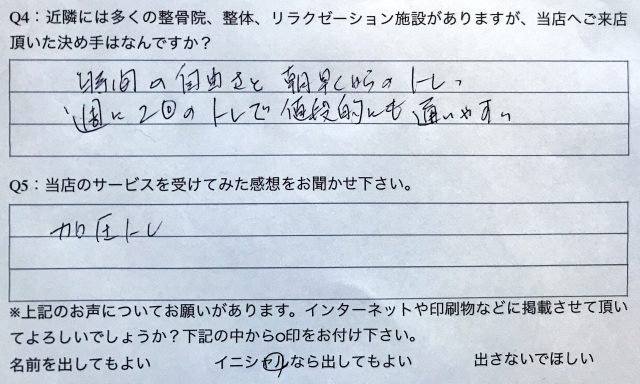 Q4：近隣には多くの整骨院、整体、リラクゼーション施設がありますが、当店へご来店
頂いた決め手はなんですか？
時間の自由さと朝早くからのトレ。
週に2回のトレで値段的にも通いやすい
Q5：当店のサービスを受けてみた感想をお聞かせ下さい。
加圧トレ
※上記のお声についてお願いがあります。インターネットや印刷物などに掲載させて頂い
てよろしいでしょうか？下記の中から○印をお付け下さい。
名前を出してもよい　イニシャルなら出してもよい　出さないでほしい